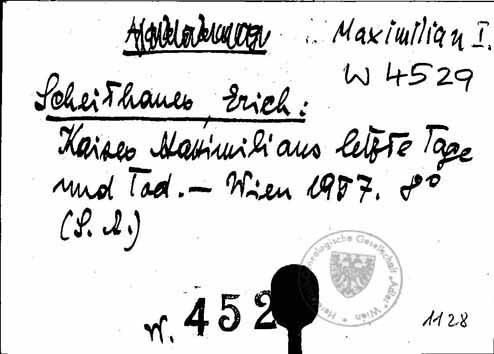 Maximilian I.
W 4529
Scheithauer, Erich:
Kaiser Maximilians letzte Tage
und Tod. — Wien 1957. 8°
(S. A.)
Heraldisch-Genealogische Gesellschaft "Adler" Wien
W. 452
1128